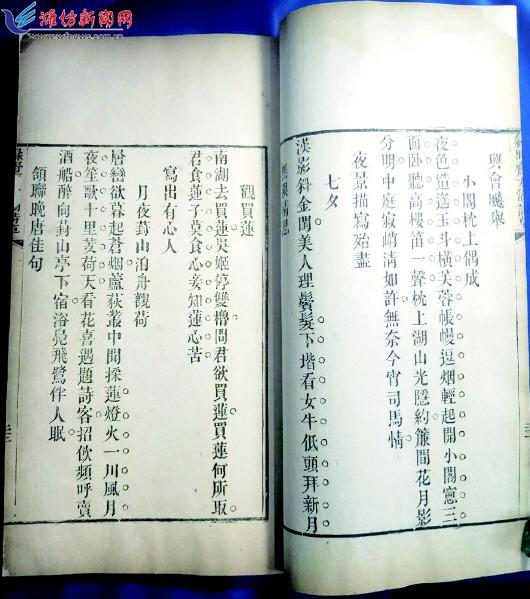 潍坊新闻网
www.wfnews.com.cn
興會飈舉
小閣枕上偶成
夜色迢遞玉斗橫芙蓉帳幔逗烟輕起開小閣窻三
面卧聽高樓笛一聲枕上湖山光隱約簾間花月影
分明中庭寂峭清如許無奈今宵司馬情
夜景描寫殆盡
七夕
漢影斜金閨美人理鬢髮下堦看女牛低頭拜新月
觀買蓮
南湖去買蓮吳姬停雙櫓問君欲買蓮買蓮何所取
君食蓮子莫食心妾知蓮心苦
寫出有心人
月夜葑山泊舟觀荷
層巒欲暮起蒼烟蘆荻叢中間採蓮燈火一川風月
夜笙歌十里芰荷天看花喜遇題詩客招飲頻呼賣
酒船醉向葑山亭下宿浴鳧飛鷺伴人眠
頷聯晚唐佳句